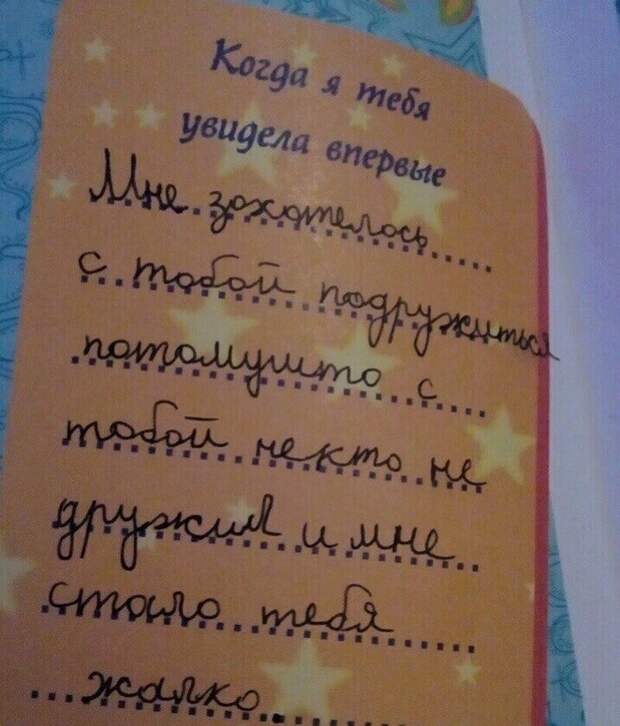 Когда я тебя
увидела впервые
Мне зохотелось
с тобой подружиться
потомушто с
тобой некто не
дружил и мне
стало тебя
жалко.